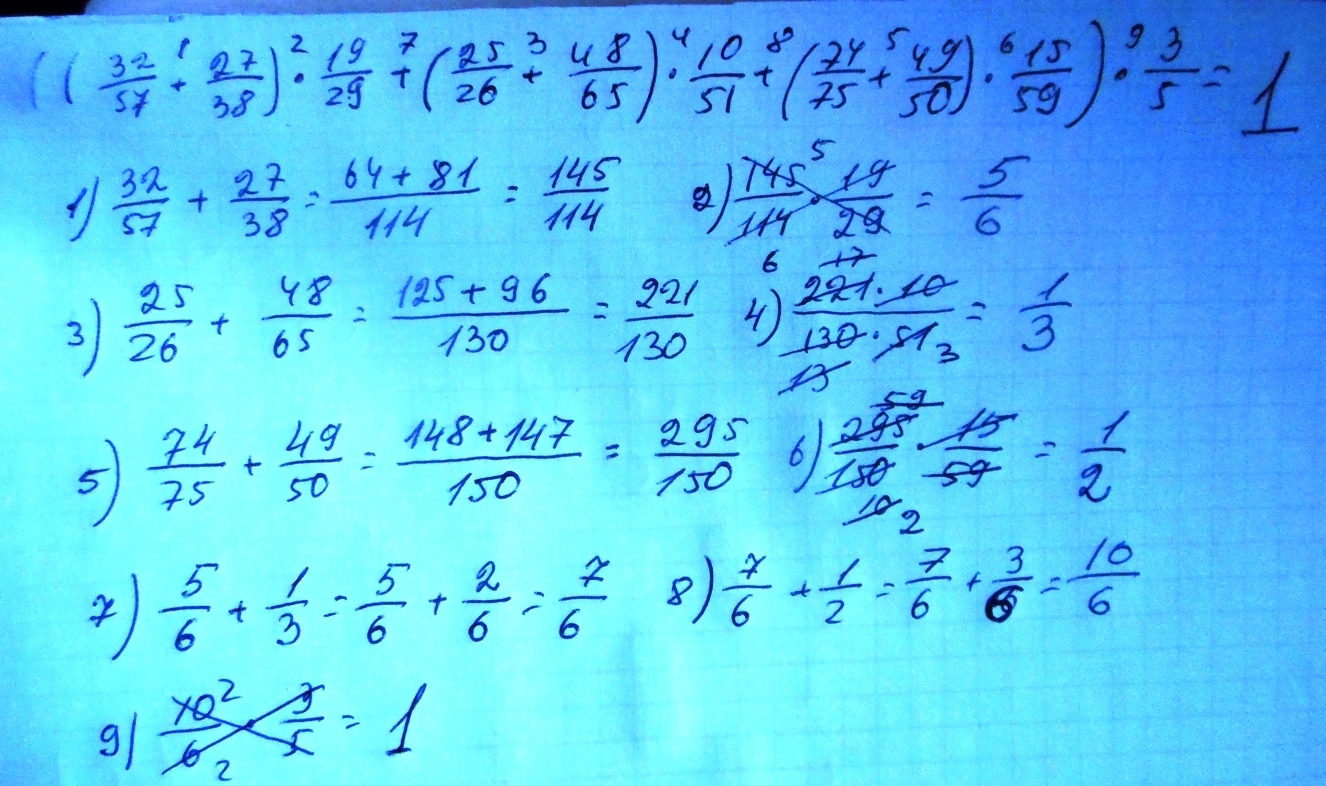 ((32/57 +¹ 27/38) ·² 19/29 +⁷ (25/26 +³ 48/65) ·⁴ 10/51 +⁸ (74/75 +⁵ 49/50) ·⁶ 15/59) ·⁹ 3/5 = 1
1) 32/57 + 27/38 = (64 + 81)/114 = 145/114 2) 145⁵/114₆ · 19/29 = 5/6
3) 25/26 + 48/65 = (125 + 96)/130 = 221/130 4) (221 17 · 10)/(130 13 · 51 3) = 1/3
5) 74/75 + 49/50 = (148 + 147)/150 = 295/150 6) 295 59/150 10 2 · 15/59 = 1/2
7) 5/6 + 1/3 = 5/6 + 2/6 = 7/6 8) 7/6 + 1/2 = 7/6 + 3/6 = 10/6
9) 10²/6₂ · 3/5 = 1